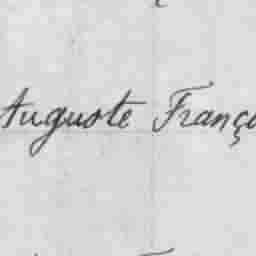 Auguste Franço